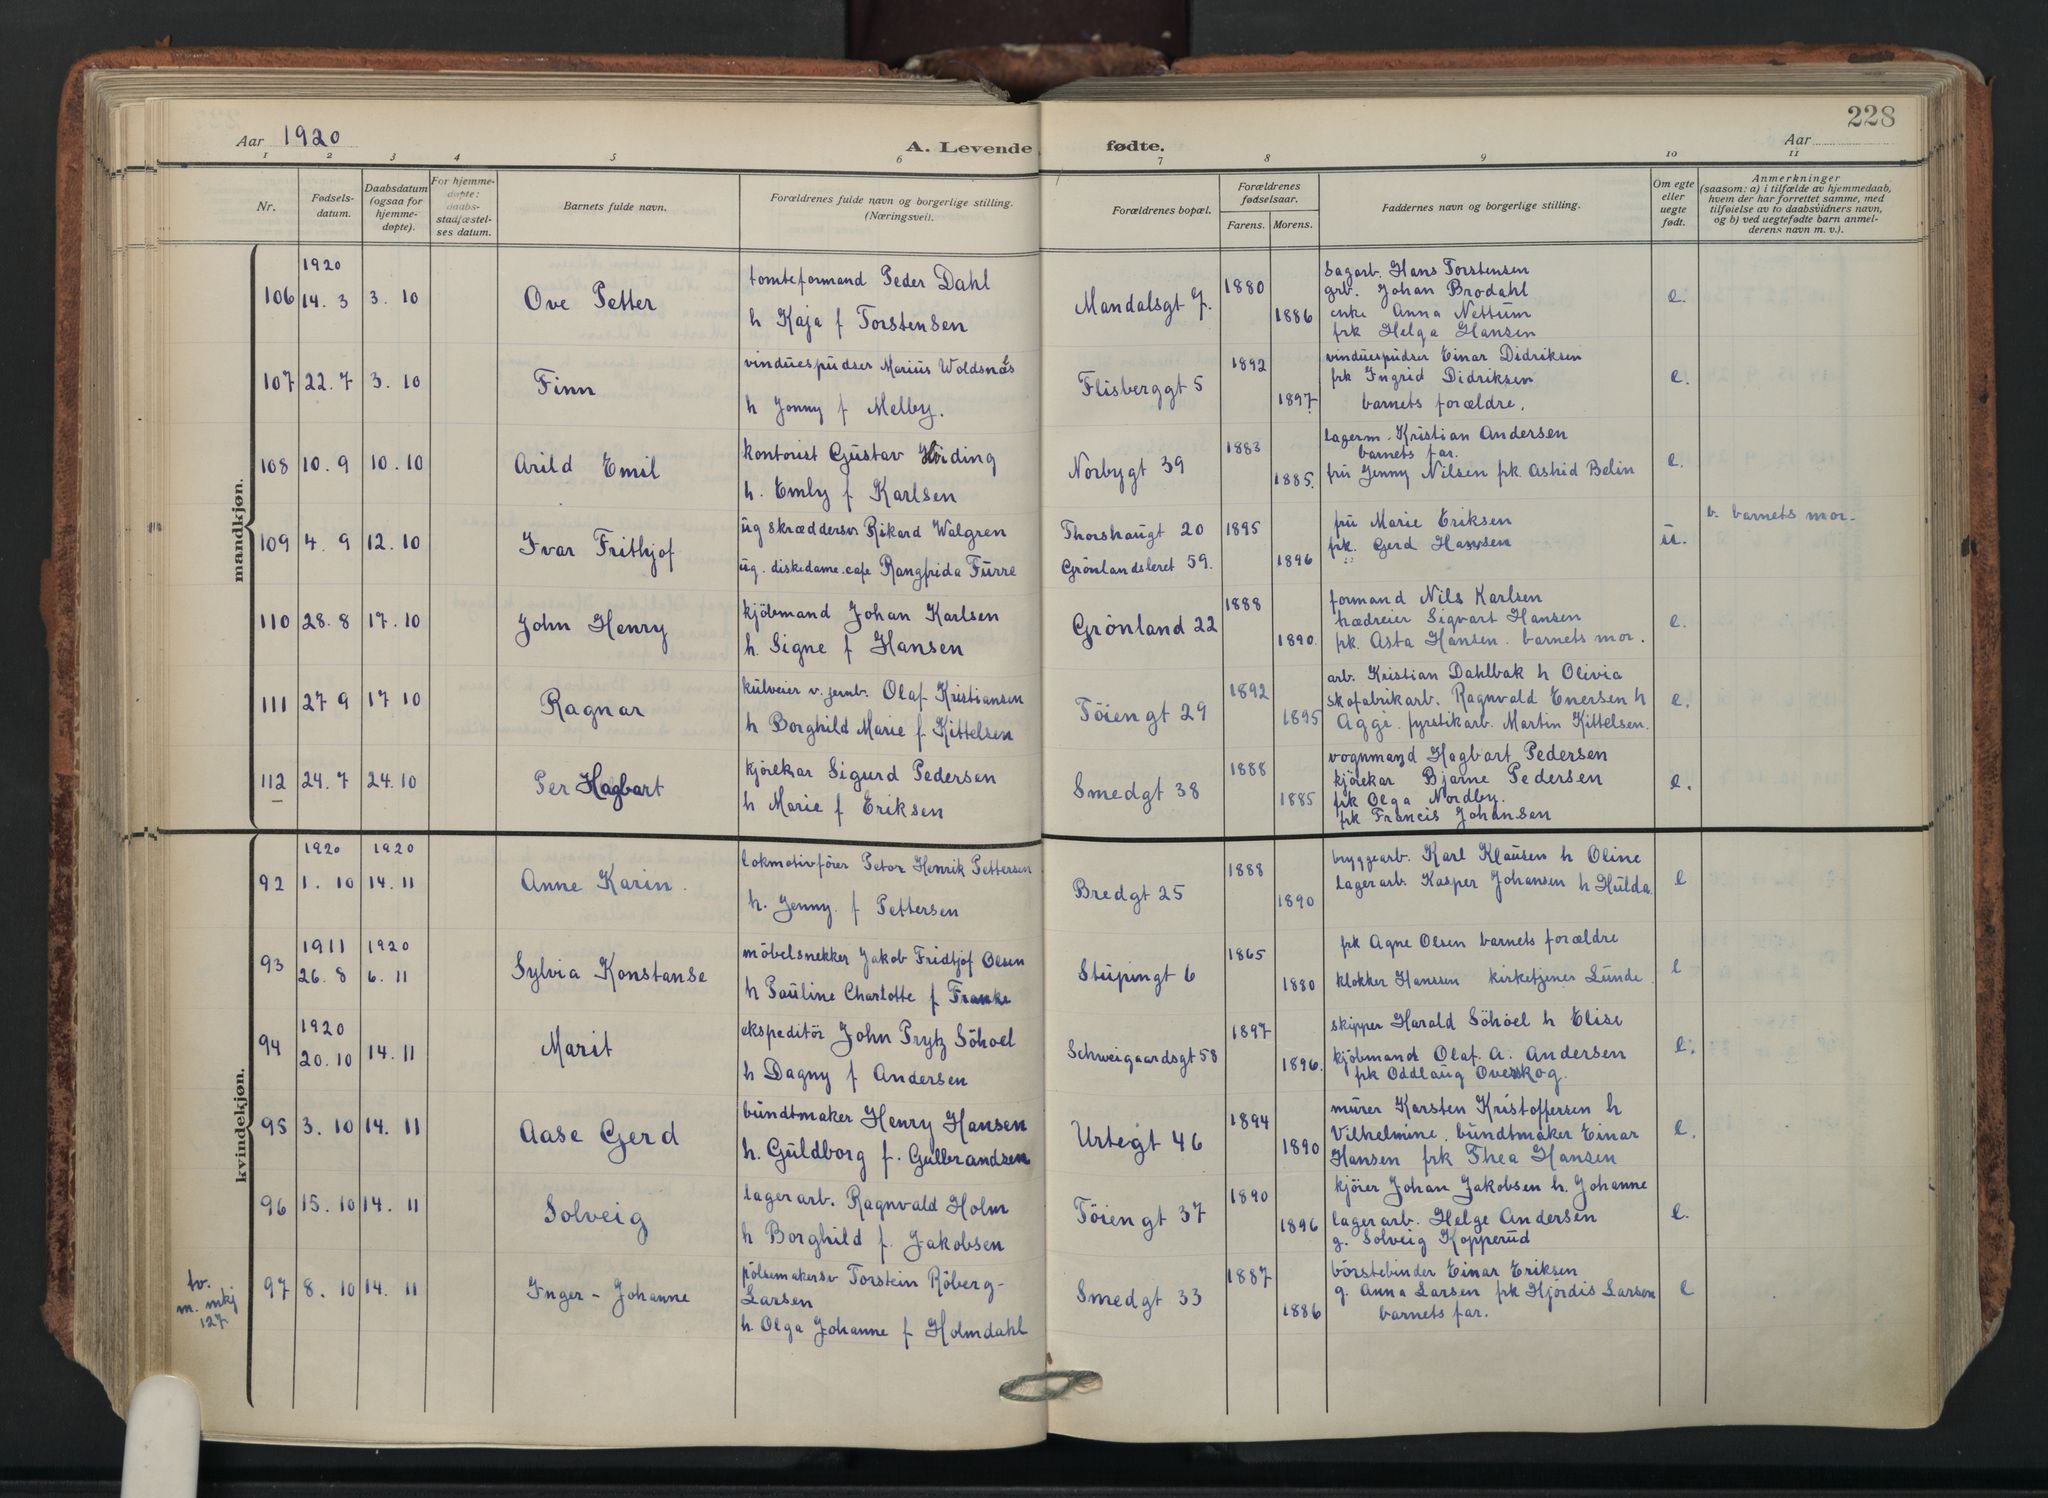 228
Aar 1920
A. Levende fødte.
Aar
1 2 3 4 5 6 7 8 9 10 11
Nr.
Fødsels-
datum.
Daabsdatum
(ogsaa for
hjemme-
døpte).
For hjemme-
døpte:
daabs-
stadfæstel-
ses datum.
Barnets fulde navn.
Forældrenes fulde navn og borgerlige stilling.
(Næringsvei).
Forældrenes bopæl.
Forældrenes
fødselsaar.
Farens. Morens.
Faddernes navn og borgerlige stilling.
Om egte
eller
uegte
født.
Anmerkninger
(saasom: a) i tilfælde av hjemmedaab,
hvem der har forrettet samme, med
tilføielse av to daabsvidners navn,
og b) ved uegtefødte barn anmel-
derens navn m. v.).
mandkjøn.
1920
106 14. 3 3. 10
Ove Petter
tomteformand Peder Dahl
h Kaja f Torstensen
Mandalsgt 7.
1880
1886
sagarb. Hans Torstensen
grb. Johan Brodahl
enke Anna Nettum
frk Helga Hansen
e.
107 22. 7 3. 10
Finn
vinduespudser Marius Woldsnæs
h Jonny f Melby.
Flisberggt 5
1892
1897
vinduespudser Einar Didriksen
frk Ingrid Didriksen
barnets forældre.
e.
108 10. 9 10. 10
Arild Emil
kontorist Gustav Hörding
h. Emly f Karlsen
Norbygt 39
1883
1885.
lagerm. Kristian Andersen
barnets far.
fru Jenny Nilsen frk Astrid Belin
e.
109 4. 9 12. 10
Ivar Frithjof
ug skræddersv Rikard Walgren
ug. diskedame. cafe Rangfrida Furre
Thorshaugt 20
Grönlandsleret 59.
1895
1896
fru Marie Eriksen
frk. Gerd Hansen
u.
b. barnets mor.
110 28. 8 17. 10
John Henry
kjöbmand Johan Karlsen
h. Signe f Hansen
Grönland 22
1888
1890.
formand Nils Karlsen
trædreier Sigvart Hansen
frk. Asta Hansen. barnets mor.
e.
111 27 9 17 10
Ragnar
kulveier v. jernb. Olaf Kristiansen
h Borghild Marie f Kittelsen
Töiengt 29
1892
1895
arb. Kristian Dahlbak h Olivia
skofabrikarb. Ragnvald Enersen h
Aggi. fyrstikarb. Martin Kittelsen.
e.
112 24. 7 24. 10
Per Hagbart
kjörekar Sigurd Pedersen
h Marie f Eriksen
Smedgt 38
1888
1885
vognmand Hagbart Pedersen
kjörekar Bjarne Pedersen
frk Olga Nordby.
frk Francis Johansen
e.
kvindekjøn.
1920 1920
92 1. 10 14. 11
Anne Karin.
lokmotivförer Petor Henrik Pettersen
h. Jenny. f Pettersen
Bredgt 25
1888
1890
bryggearb. Karl Klausen h Oline
lagerarb. Kasper Johansen h Hulda.
e
1911 1920
93 26. 8 6. 11
Sylvia Konstanse
möbelsnekker Jakob Fridtjof Olsen
h Pauline Charlotte f Franke
Stupingt 6
1865
1880
frk Agne Olsen barnets forældre
klokker Hanssen kirketjener Lunde.
e
1920
94 20. 10 14. 11
Marit
ekspeditör John Prytz Söhoel
h Dagny f Andersen
Schweigaardsgt 58
1897
1896.
skipper Harald Söhoel h Elise
kjöbmand Olaf. A. Andersen
frk Oddlaug Overskog.
e.
95 3. 10 14. 11
Aase Gerd
buntmaker Henry Hansen
h. Guldborg f. Gulbrandsen
Urtegt 46
1894
1890
murer Karsten Kristoffersen h
Vilhelmine. bundtmaker Einar
Hansen frk Thea Hansen
e.
96 15. 10 14. 11
Solveig
lagerarb. Ragnvald Holm
h Borghild f. Jakobsen
Töiengt 37
1890
1896
kjörer Johan Jakobsen h. Johanne
lagerarb. Helge Andersen
g. Solveig Kopperud
e.
tv.
m. mkj
127
97 8. 10 14. 11
Inger - Johanne
pölsemakersv Torstein Röberg-
Larsen
h. Olga Johanne f Holmdahl
Smedgt 33
1887
1886
börstebinder Einar Eriksen
g. Anna Larsen frk Hjördis Larsen
barnets far.
e